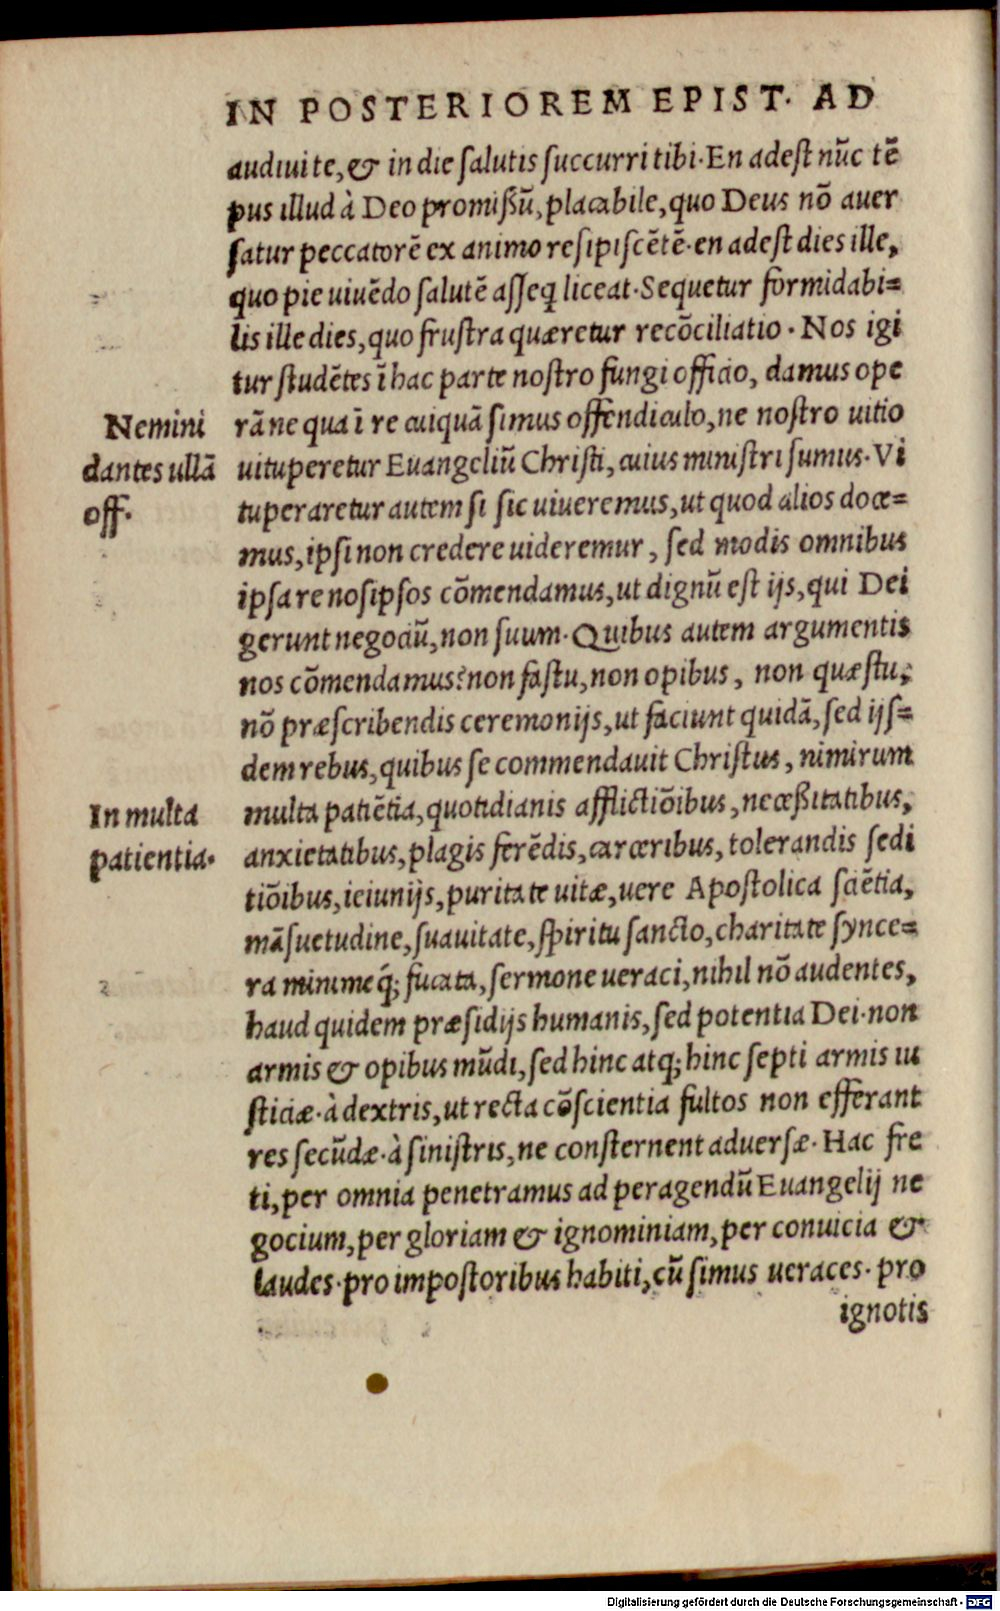 IN POSTERIOREM EPIST. AD
audiui te, & in die salutis succurri tibi. En adest nūc tē
pus illud à Deo promißū, placabile, quo Deus nō auer
satur peccatorē ex animo resipiscētē. en adest dies ille,
quo pie uiuēdo salutē asseq liceat. Sequetur formidabi=
lis ille dies, quo frustra quæretur recōciliatio. Nos igi
tur studētes ī hac parte nostro fungi officio, damus ope
Nemini
dantes ullā
off.
rā ne qua ī re cuiquā simus offendiculo, ne nostro uitio
uituperetur Euangeliū Christi, cuius ministri sumus. Vi
tuperaretur autem si sic uiueremus, ut quod alios doce=
mus, ipsi non credere uideremur, sed modis omnibus
ipsa re nosipsos cōmendamus, ut dignū est ijs, qui Dei
gerunt negociū, non suum. Quibus autem argumentis
nos cōmendamus? non fastu, non opibus, non quæstu,
nō præscribendis ceremonijs, ut faciunt quidā, sed ijs=
dem rebus, quibus se commendauit Christus, nimirum
In multa
patientia.
multa patiētia, quotidianis afflictiōibus, neceßitatibus,
anxietatibus, plagis ferēdis, carceribus, tolerandis sedi
tiōibus, ieiunijs, puritate uitæ, uere Apostolica sciētia,
māsuetudine, suauitate, spiritu sancto, charitate synce=
ra minimeq́; fucata, sermone ueraci, nihil nō audentes,
haud quidem præsidijs humanis, sed potentia Dei. non
armis & opibus mūdi, sed hinc atq; hinc septi armis iu
sticiæ. à dextris, ut recta cōscientia fultos non efferant
res secūdæ. à sinistris, ne consternent aduersæ. Hac fre
ti, per omnia penetramus ad peragendū Euangelij ne
gocium, per gloriam & ignominiam, per conuicia &
laudes. pro impostoribus habiti, cū simus ueraces. pro
ignotis
Digitalisierung gefördert durch die Deutsche Forschungsgemeinschaft - DFG